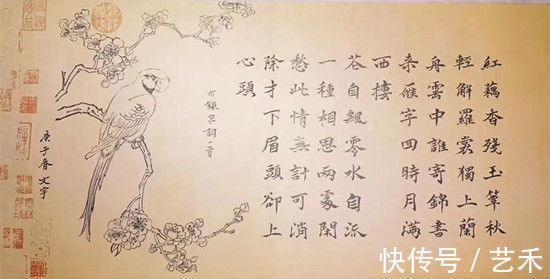 紅藕香殘玉簟秋
輕解羅裳獨上蘭
舟雲中誰寄錦書
来雁字回時月滿
西樓
花自飄零水自流
一種相思兩處閑
愁此情無計可消
除才下眉頭卻上
心頭
右錄宋詞一首
庚子春 文宇
快传号 / 艺禾